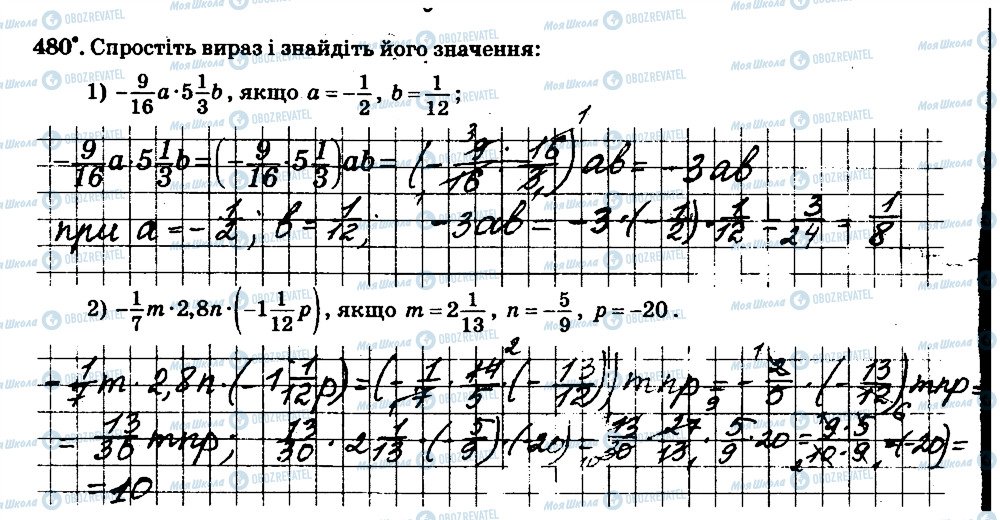 480°. Спростіть вираз і знайдіть його значення:
1) -9/16 a · 5 1/3 b, якщо a = -1/2, b = 1/12;
-9/16 a · 5 1/3 b = (-9/16 · 5 1/3) ab = (-9/16 · 16/3) ab = -3ab
при a = -1/2; b = 1/12; -3ab = -3 · (-1/2) · 1/12 = 3/24 = 1/8
2) -1/7 m · 2,8n · (-1 1/12 p), якщо m = 2 1/13, n = -5/9, p = -20.
-1/7 m · 2,8n · (-1 1/12 p) = (-1/7 · 14/5 · (-13/12)) mnp = -2/5 · (-13/12) mnp =
= 13/30 mnp; 13/30 · 2 1/13 · (-5/9) · (-20) = 13/30 · 27/13 · 5/9 · 20 = 9·5/10·9 · (-20) =
= 10